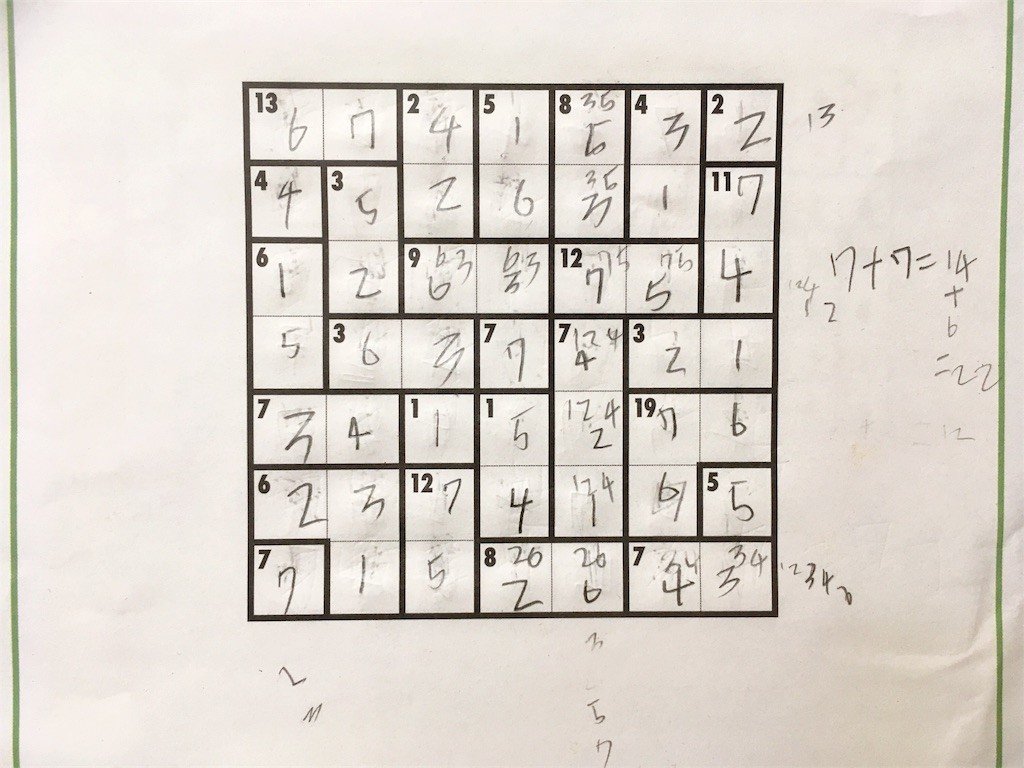 13 6 7 2 4 5 1 8 35 5 4 3 2 2 13
4 4 3 5 2 6 35 3 1 11 7
6 1 2 9 63 6 63 3 12 75 7 75 5 4 7+7=14
+
6
=22
5 3 6 3 7 7 7 124 4 3 2 1
7 3 4 1 1 1 5 124 2 19 7 6
6 2 3 12 7 4 124 1 6 5 5
7 7 1 5 8 26 2 26 6 7 34 4 34 3
3
2
5
7